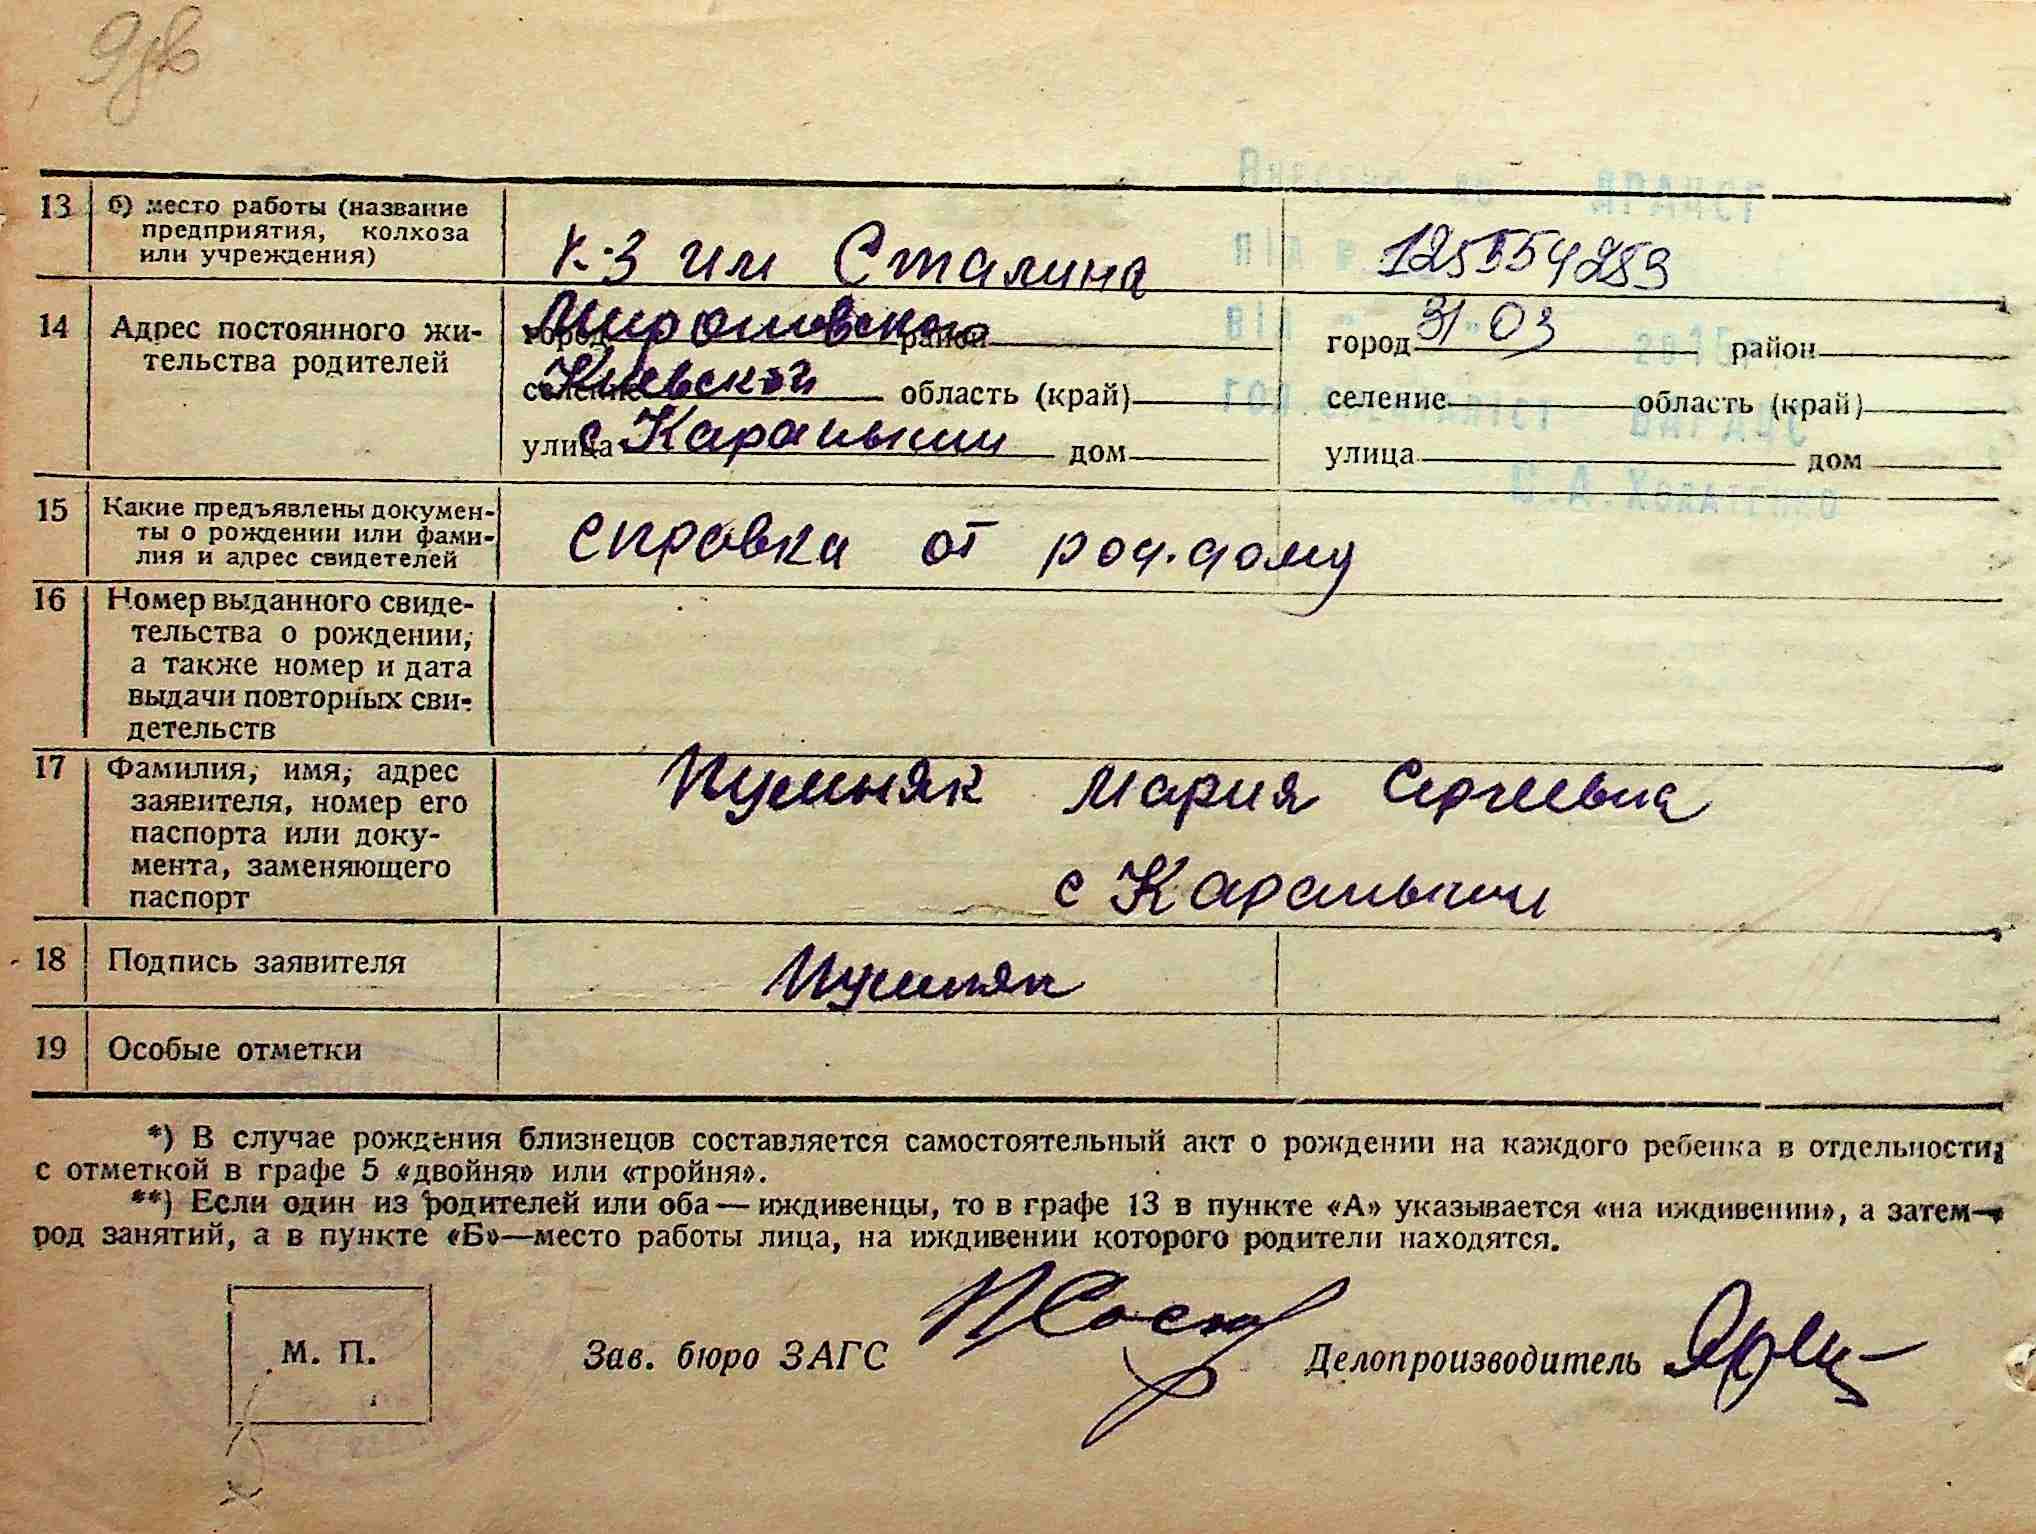 13 б) место работы (название
предприятия, колхоза
или учреждения)
к-з им Сталина
125554289
14 Адрес постоянного жи-
тельства родителей
Мироновского
город район
Киевской
селение область (край)
с Карапыши
улица дом
город 31 03 район
селение область (край)
улица дом
15 Какие предъявлены докумен-
ты о рождении или фами-
лия и адрес свидетелей
справка от род.дому
16 Номер выданного свиде-
тельства о рождении,
а также номер и дата
выдачи повторных сви-
детельств
17 Фамилия, имя, адрес
заявителя, номер его
паспорта или доку-
мента, заменяющего
паспорт
Мария Сергеевна
с Карапыши
18 Подпись заявителя
19 Особые отметки
*) В случае рождения близнецов составляется самостоятельный акт о рождении на каждого ребенка в отдельности,
с отметкой в графе 5 «двойня» или «тройня».
**) Если один из родителей или оба — иждивенцы, то в графе 13 в пункте «А» указывается «на иждивении», а затем—
род занятий, а в пункте «Б»—место работы лица, на иждивении которого родители находятся.
М. П.
Зав. бюро ЗАГС
Делопроизводитель